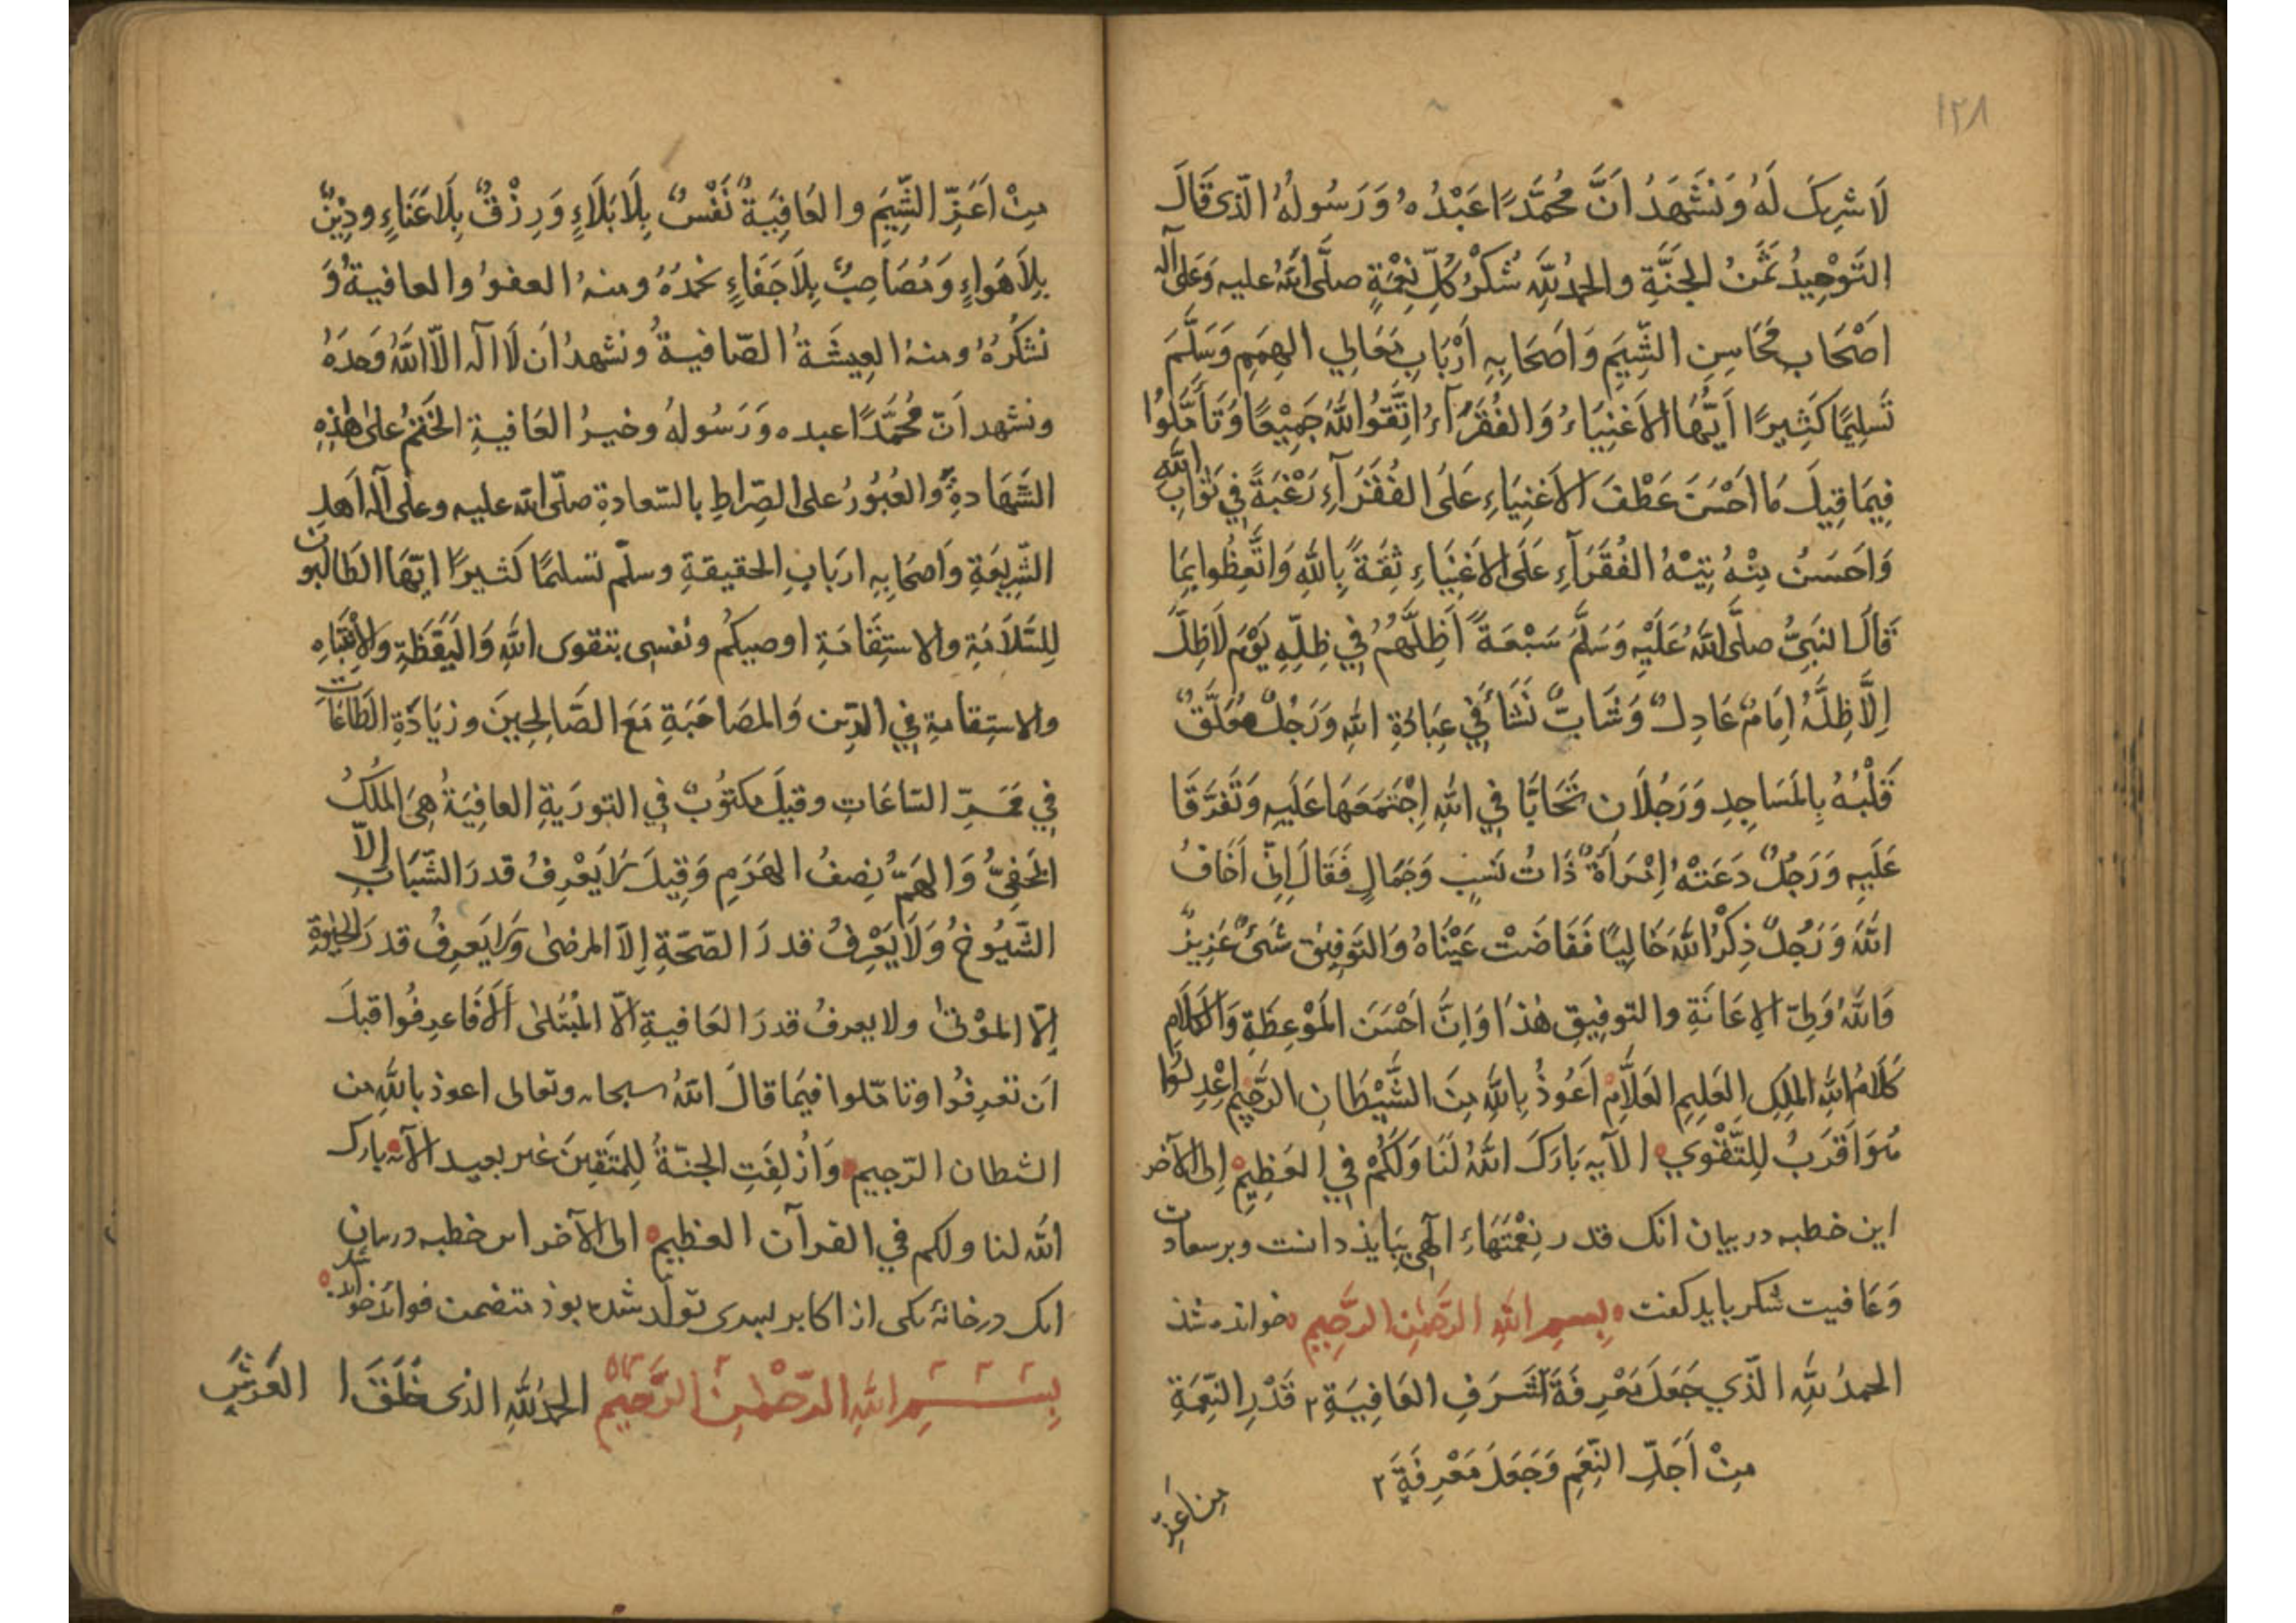 ١٢٨
لَا شَرِيكَ لَهُ وَنَشْهَدُ اَنَّ مُحَمَّدًا عَبْدُهُ وَرَسُولُهُ الَّذى قَالَ
التَّوْحِيدُ ثَمَنُ الجَنَّةِ والحمدُ لِلّٰهِ شُكْرُ كُلِّ نِعْمَةٍ صلَّى اللهُ عليه وَعَلى آله
اَصْحَابِ مَحَاسِنِ الشِّيَمِ وَاَصْحَابِهِ اَرْبَابِ مَعَالِي الهِمَمِ وَسَلَّمَ
تَسلِيمًا كَثِيرًا اَيُّهَا الاَغنِيَاءُ وَالفُقَرَآءُ اِتَّقُوا اللّٰهَ جَمِيْعًا وَتَأَمَّلُوا
فِيمَا قِيلَ مَا اَحْسَنَ عَطْفَ الاَغنِيَاءِ عَلَى الفُقَرَآءِ رَغْبَةً فِي ثَوَابِ اللّٰه
وَاَحسَنُ مِنْهُ تِيْهُ الفُقَرَآءِ عَلَى الاَغنِيَاءِ ثِقَةً بِاللّٰهِ وَاتَّعِظُوا بِمَا
قَالَ النبَيُّ صلَّى اللهُ عَلَيْهِ وَسَلَّمَ سَبْعَةٌ اَظِلَّهُمُ فِي ظِلِّهِ يَوْمَ لَاظِلَّ
اِلَّا ظِلَّهُ اِمَامٌ عَادِلٌ وَشَابٌّ نَشَأَ فِي عِبَادَةِ اللهِ وَرَجُلٌ مُعَلَّقٌ
قَلْبُهُ بِالمَسَاجِدِ وَرَجُلَانِ تَحَابَّا فِي اللهِ اِجْتَمَعَهَا عَلَيهِ وَتَفَرَّقَا
عَلَيهِ وَرَجُلٌ دَعَتْهُ اِمْرَاَةٌ ذَاتُ نَسَبٍ وَجَمَالٍ فَقَالَ اِنِّي اَخَافُ
اللّٰهَ وَرَجُلٌ ذِكْرُ اللّٰهَ خَالِيًا فَفَاضَتْ عَيْنَاهُ وَالتَوفِيق شَىْءٌ عَزِيزٌ
وَاللّٰهُ وَلِىّ الاِعَانَةِ والتوفِيقِ هٰذَا وَاِنَّ اَحْسَنَ المَوْعِظَةِ وَالكَلَامِ
كَلَامُ اللهِ المَلِكِ العَلِيمِ العَلَّامِ اَعُوذُ بِاللّٰهِ مِنَ الشَّيْطَانِ الرَّجِيمِ اِعْدِلُوا
هُوَ اَقرَبُ لِلتَّقْوَي الآيه بَارَكَ اللهُ لَنَا وَلَكُمْ فِي العَظِيمِ اِلى الآخر
این خطبه در بیان انک قدر نِعْمَتَهَاءَ الٓهِی بِبَایذ دانست و بر سعادت
وَعَافیت شکر باید کفت بِسمِ اللهِ الرَّحمٰنِ الرَّحِيمِ خوانذه شذ
الحمدُ لِلّٰهِ الَّذي جَعَلَ مَعْرِفَةَ شَرَفِ العَافِيَةِ ٢ قَدْرِ النِّعْمَةِ
مِنْ اَجَلِّ النِّعَمِ وَجَعَلَ مَعْرِفَةَ ٢
مِن اَعَزِّ
مِنْ اَعَزِّ الشِّيَمَ والعَافِيَةُ نَفْسٌ بِلَا بَلَاءٍ وَرِزْقٌ بِلَا عَنَاءٍ ودِيْنٌ
بِلَا هَوَاءٍ وَمُصَاحِبٌ بِلَا جَفَاءٍ نحمَدُهُ ومنهُ العفوُ والعافيةُ وَ
نَشكُرُهُ ومنهُ العِيشَةُ الصّافيةُ ونشهدُ ان لَا اله الّا اللهُ وَحدَهُ
ونشهد اَنّ مُحَمَّدًا عبده وَرَسُولُهُ وخيرُ العَافيةِ الخَتمُ عَلى هٰذِهِ
الشَّهَادةِ والعُبُورُ على الصِّراطِ بالسّعادةِ صلّى الله عليه وعلى آله اَهلِ
الشَّرِيعَةِ وَاَصحَابِهِ اربَابِ الحقيقةِ وسلّم تسليمًا كثيرًا ايّهَا الطَالبون
لِلسَّلَامَةِ والاستِقَامَةِ اوصيكُم ونفسى بتقوى اللّٰهِ وَاليَقَظَةِ والاِنتِبَاهِ
والاستِقامةِ فِي الدِّين وَالمصَاحَبَةِ مَعَ الصَّالِحِينَ وزيَادَةِ الطَّاعَات
فِي مَمَرِّ السّاعَاتِ وقيلَ مكتوُبٌ فِي التورَيةِ العافِيَةُ هِىَ المُلكُ
الخَفِيُّ وَالهمُّ نِصفُ الهَرَمِ وَقِيلَ لَا يَعْرِفُ قدرَ الشّبَابِ اِلّا
الشّيُوخُ وَلَا يَعْرِفُ قدرَ الصّحّةِ اِلّا المرضىٰ وَلا يَعرِفُ قدرَ الحَيٰوةِ
اِلّا المَوْتىٰ ولا يعرفُ قدرَ العَافيةِ الّا المُبْتَلىٰ اَلَا فَاعرِفُوا قبلَ
اَن تعرِفُوا وتامّلوا فيمَا قالَ اللهُ سبحانه وتعالى اعوذ باللّٰهِ من
الشطان الرّجيم وَاُزْلِفَتِ الجنّةُ لِلمتّقِينَ غير بعيد الآیه بارك
اللّٰه لنا ولكم في القرآن العظيم الى الآخر اىن خطبه در بیان
انک در خانهٔ یکی از اکابر پسری تولّد شده بوذ متضمن فوائد خوانده شد
بِسْمِ اللهِ الرّحْمٰنِ الرَّحِيمِ الحمدُ لِلّٰهِ الذى خَلَقَ العَرْشَ